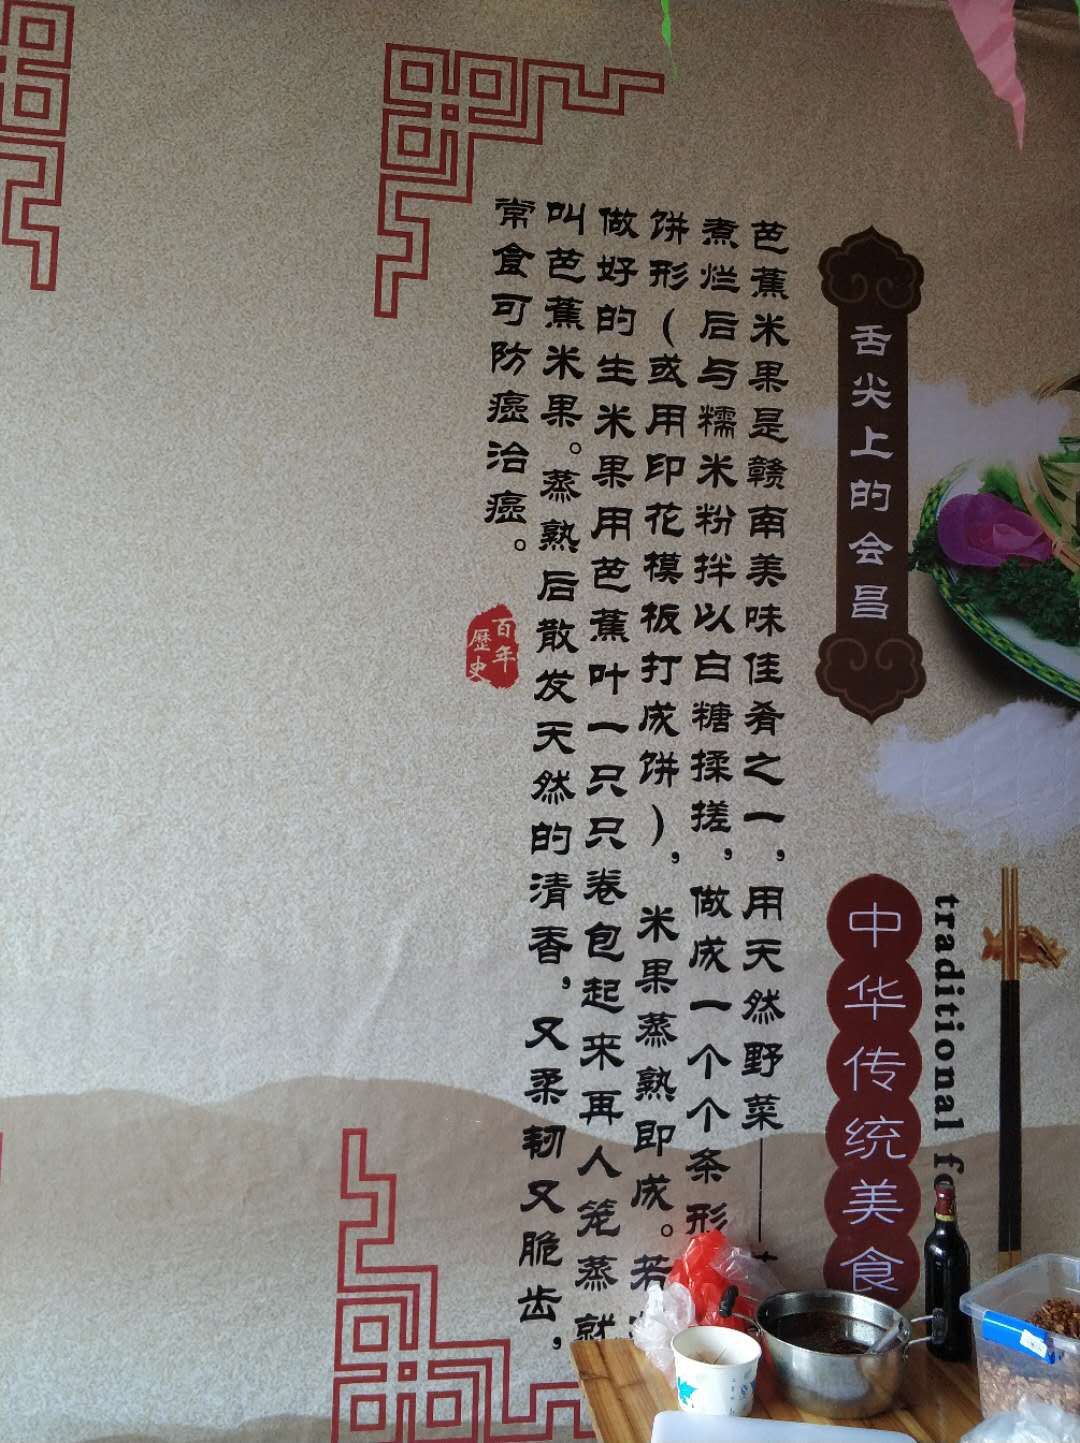 舌尖上的会昌
中华传统美食
traditional fo
芭蕉米果是赣南美味佳肴之一，用天然野菜—
煮烂后与糯米粉拌以白糖揉搓，做成一个个条形
饼形（或用印花模板打成饼），米果蒸熟即成。若
做好的生米果用芭蕉叶一只只卷包起来再人笼蒸就
叫芭蕉米果。蒸熟后散发天然的清香，又柔韧又脆齿，
常食可防癌治癌。
百年
歷史